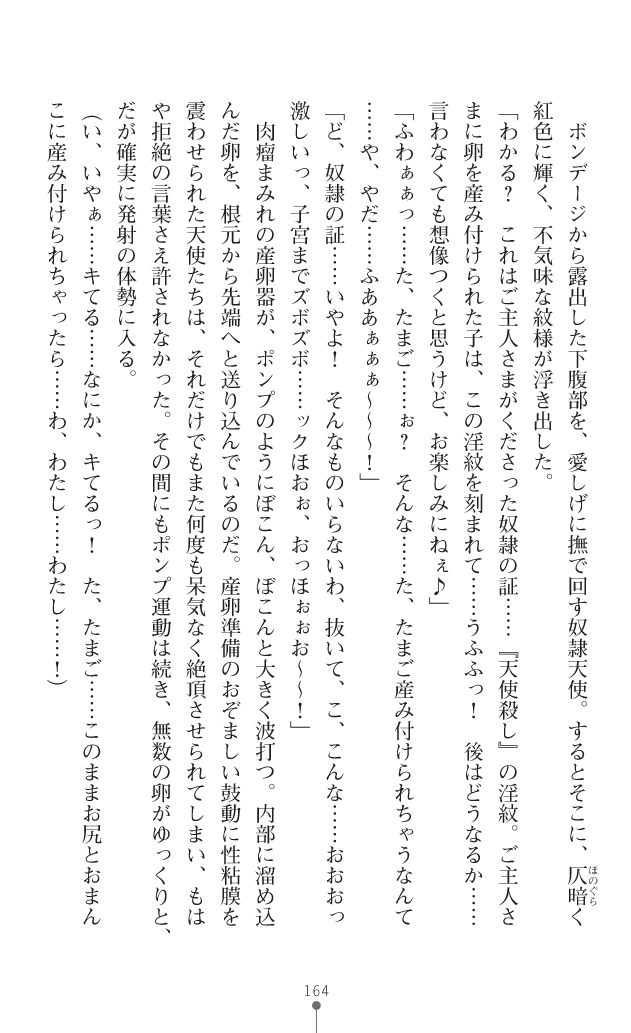 ボンデージから露出した下腹部を、愛しげに撫で回す奴隷天使。するとそこに、仄暗く
ほのぐら
紅色に輝く、不気味な紋様が浮き出した。
「わかる？　これはご主人さまがくださった奴隷の証……『天使殺し』の淫紋。ご主人さ
まに卵を産み付けられた子は、この淫紋を刻まれて……うふふっ！　後はどうなるか……
言わなくても想像つくと思うけど、お楽しみにねぇ♪」
「ふわぁぁっ……た、たまご……ぉ？　そんな……た、たまご産み付けられちゃうなんて
……や、やだ……ふああぁぁぁ〜〜〜！」
「ど、奴隷の証……いやよ！　そんなものいらないわ、抜いて、こ、こんな……おおおっ
激しいっ、子宮までズボズボ……ックほおぉ、おっほぉぉお〜〜！」
肉瘤まみれの産卵器が、ポンプのようにぼこん、ぼこんと大きく波打つ。内部に溜め込
んだ卵を、根元から先端へと送り込んでいるのだ。産卵準備のおぞましい鼓動に性粘膜を
震わせられた天使たちは、それだけでもまた何度も呆気なく絶頂させられてしまい、もは
や拒絶の言葉さえ許されなかった。その間にもポンプ運動は続き、無数の卵がゆっくりと、
だが確実に発射の体勢に入る。
（い、いやぁ……キてる……なにか、キてるっ！　た、たまご……このままお尻とおまん
こに産み付けられちゃったら……わ、わたし……わたし……！）
164